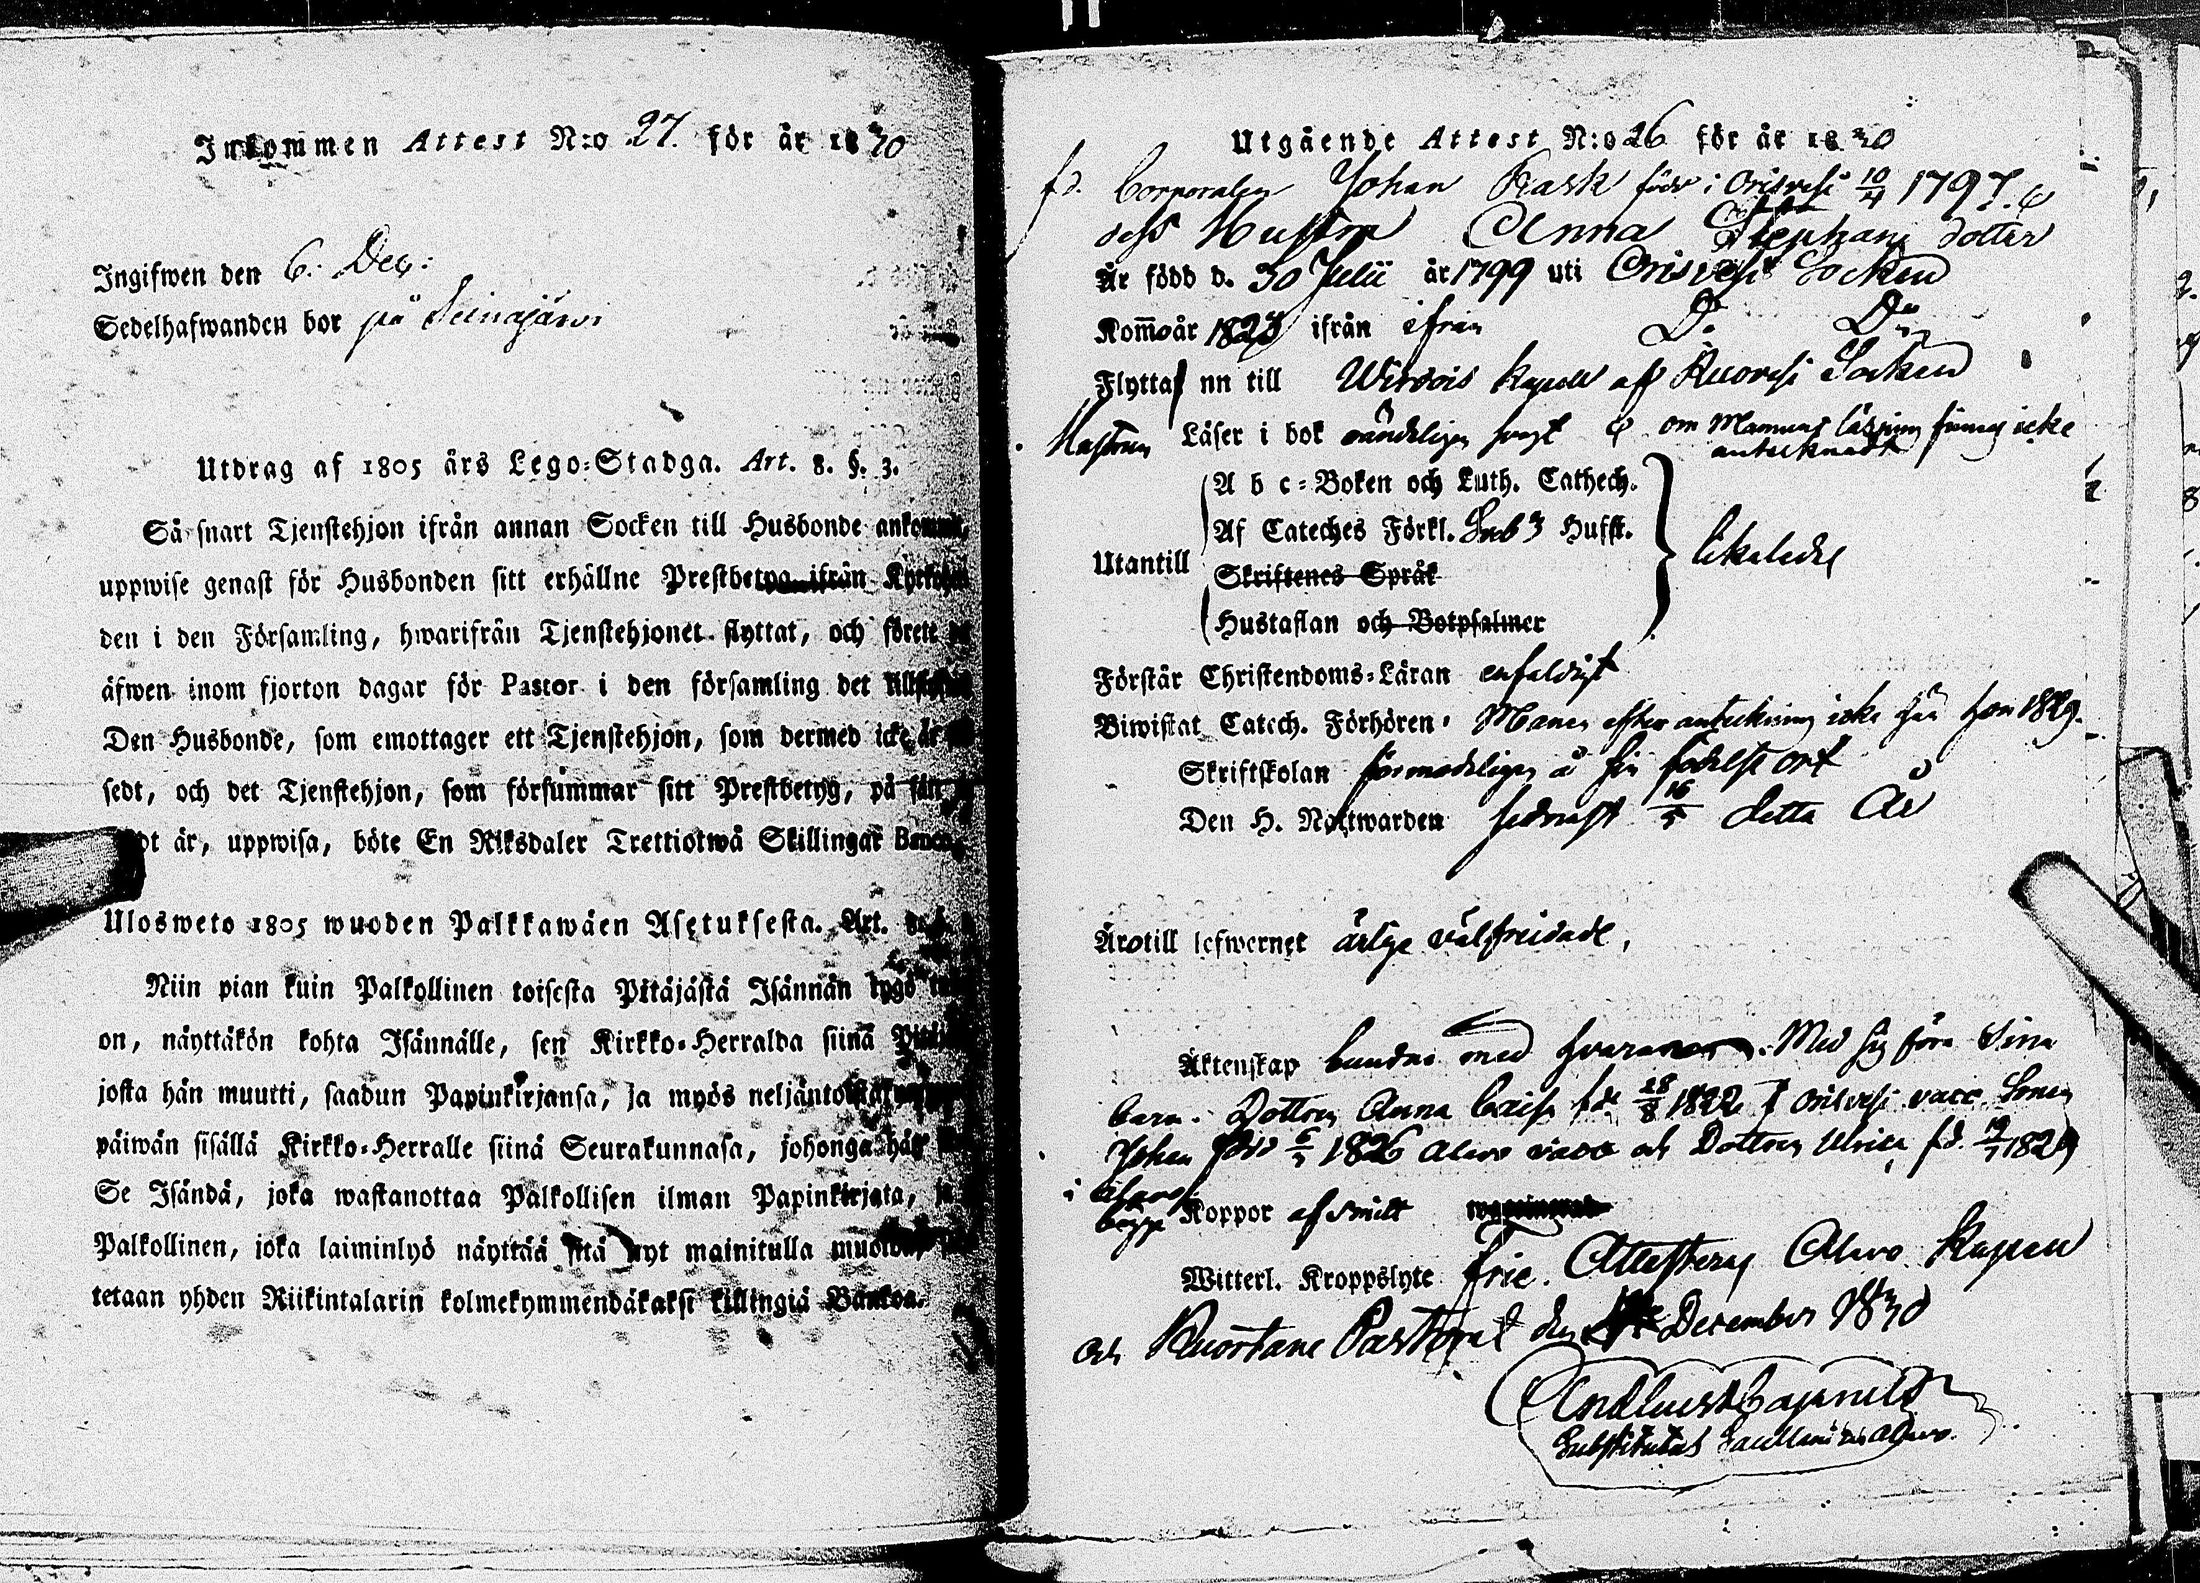 Inkommen Attest N:o 27. för år 1830
Ingifwen den 6. Dec:
Sedelhafwanden bor på Seinäjärvi
Utdrag af 1805 års Lego-Stadga. Art. 8. §. 3.
Så snart Tjenstehjon ifrån annan Socken till Husbonde ankommit,
uppwise genast för Husbonden sitt erhållne Prestbetyg ifrån Kyrkoher
den i den Församling, hwarifrån Tjenstehjonet flyttat, och förete
äfwen inom fjorton dagar för Pastor i den församling det
Den Husbonde, som emottager ett Tjenstehjon, som dermed icke är
sedt, och det Tjenstehjon, som försummar sitt Prestbetyg, på sätt
är, uppwisa, böte En Riksdaler Trettiotwå Skillingar Banco.
Ulosweto 1805 wuoden Palkkawäen Asetuksesta. Art. 8. §.
Niin pian kuin Palkollinen toisesta Pitäjästä Isännän tygö
on, näyttäkön kohta Isännälle, sen Kirkko-Herralda siinä
josta hän muutti, saadun Papinkirjansa, ja myös neljäntoista
päiwän sisällä Kirkko-Herralle siinä Seurakunnasa, johonga hän
Se Isändä, joka wastanottaa Palkollisen ilman Papinkirjata, ja
Palkollinen, joka laiminlyö näyttää sitä nyt mainitulla muodolla,
tetaan yhden Riikintalarin kolmekymmendäkaksi killingiä Bankoa.
Utgående Attest N:o 26 för år 1830
fd. Corporalen Johan Rask född i Orisvesi 10/4 1797. &
dess Hustru Anna Stephans dotter
Är född d. 30 Julii år 1799 uti Orisvesi Socken
Kom̄o år 1823 ifrån ifrån Do Do
Flytta nu till Wirdois Kapell af Ruovesi Socken
Hustrun Läser i bok svagt & om Mannens läsning finnes icke
antecknadt
Utantill
A b c-Boken och Luth. Cathech.
Af Cateches Förkl. Hufst.
Skriftenes Språk
Hustaflan och Botpsalmer
likaledes
Förstår Christendoms-Läran enfaldigt
Biwistat Catech. Förhören. Manen efter anteckning icke hon 1829.
Skriftskolan förmodeligen å sin födelse ort
Den H. Nattwarden sednast 16/5 detta År
Äro till lefwernet ärlige välfreidade,
Äktenskap bundne med hvarannan. Med sig föra sina
barn. Dottren Anna Caisa fd. 28/8 1822 i Orisvesi vacc. Sonen
Johan född 6/5 1826 Alavo vacc och Dottren Ulrica fd. 19/7 1829
i Alavo
begge Koppor af smitt waccinerad
Witterl. Kroppslyte frie. Attesterar Alavo Kapell
och Kuortane Pastorat den December 1830
Substitutus Sacellani in Alavo.